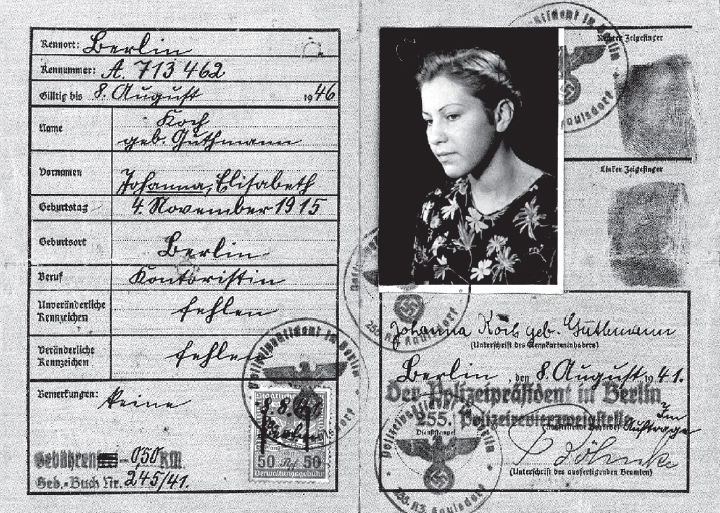 Kennort: Berlin
Kennummer: A. 713462
Gültig bis 8. August 1946
Name Koch
geb. Guthmann
Vornamen Johanna, Elisabeth
Geburtstag 4. November 1915
Geburtsort Berlin
Beruf Kontoristin
Unveränderliche Kennzeichen fehlen
Veränderliche Kennzeichen fehlen
Bemerkungen: keine
Gebühren 0,50 RM.
Geb.-Buch Nr. 245/41.
50 Rpf 50
Verwaltungsgebühr
Polizeipräsident in Berlin
Rechter Zeigefinger
Polizeipräsident in Berlin
Kaulsdorf
Linker Zeigefinger
255. Kaulsdorf
Johanna Koch geb. Guthmann
(Unterschrift des Kennkarteninhabers)
Berlin, den 8. August 1941.
Der Polizeipräsident in Berlin
255. Polizeirevierzweigstelle
Im Auftrage
Dienststempel
(Unterschrift des ausfertigenden Beamten)
Polizeipräsident in Berlin
255. Kaulsdorf